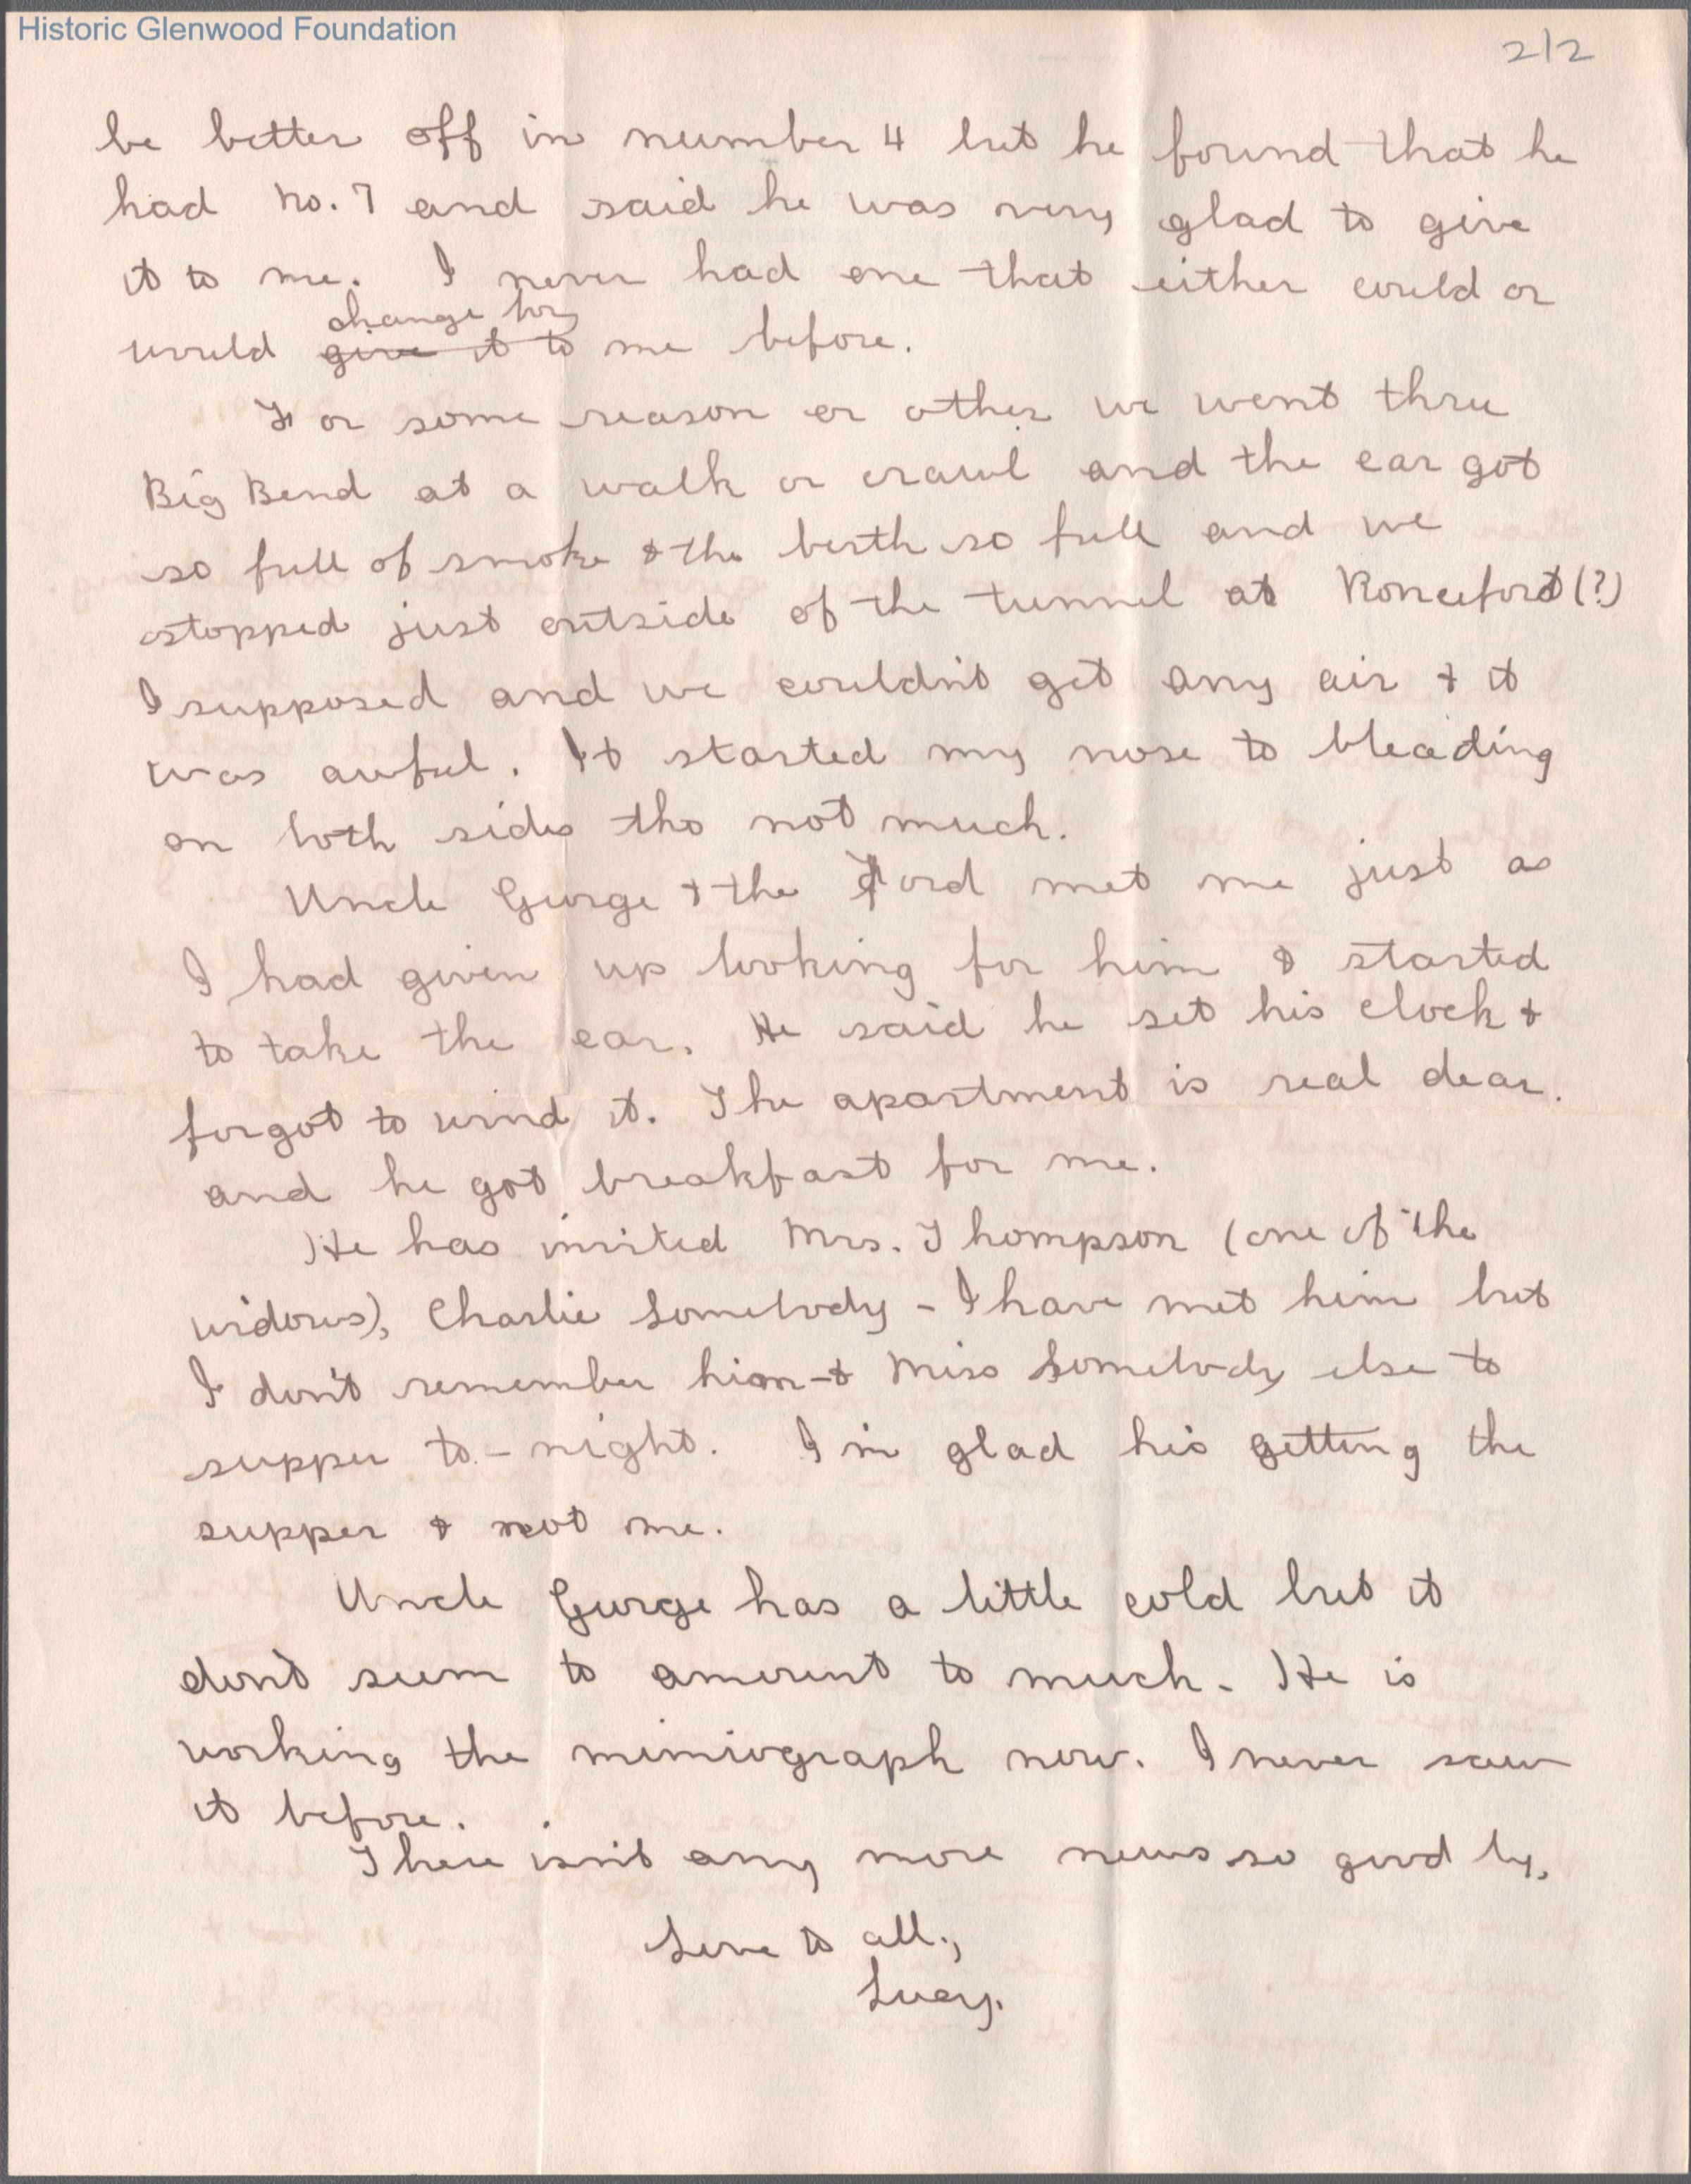 Historic Glenwood Foundation
2/2
be better off in number 4 but he found that he
had no. 7 and said he was very glad to give
it to me. I never had one that either could or
change for
would give it to me before.
For some reason or other we went thru
Big Bend at a walk or crawl and the car got
so full of smoke & the berth so full and we
stopped just outside of the tunnel at Ronceford (?)
I supposed and we couldn't get any air & it
was awful. It started my nose to bleeding
on both sides tho not much.
Uncle George & the Ford met me just as
I had given up looking for him & started
to take the car. He said he set his clock &
forgot to wind it. The apartment is real dear.
and he got breakfast for me.
He has invited Mrs. Thompson (one of the
widows), Charlie Somebody - I have met him but
I don't remember him - & Miss Somebody else to
supper to-night. I'm glad he's getting the
supper & not me.
Uncle George has a little cold but it
don't seem to amount to much. He is
working the mimiograph now. I never saw
it before.
There isn't any more news so good by.
Love to all.,
Lucy.